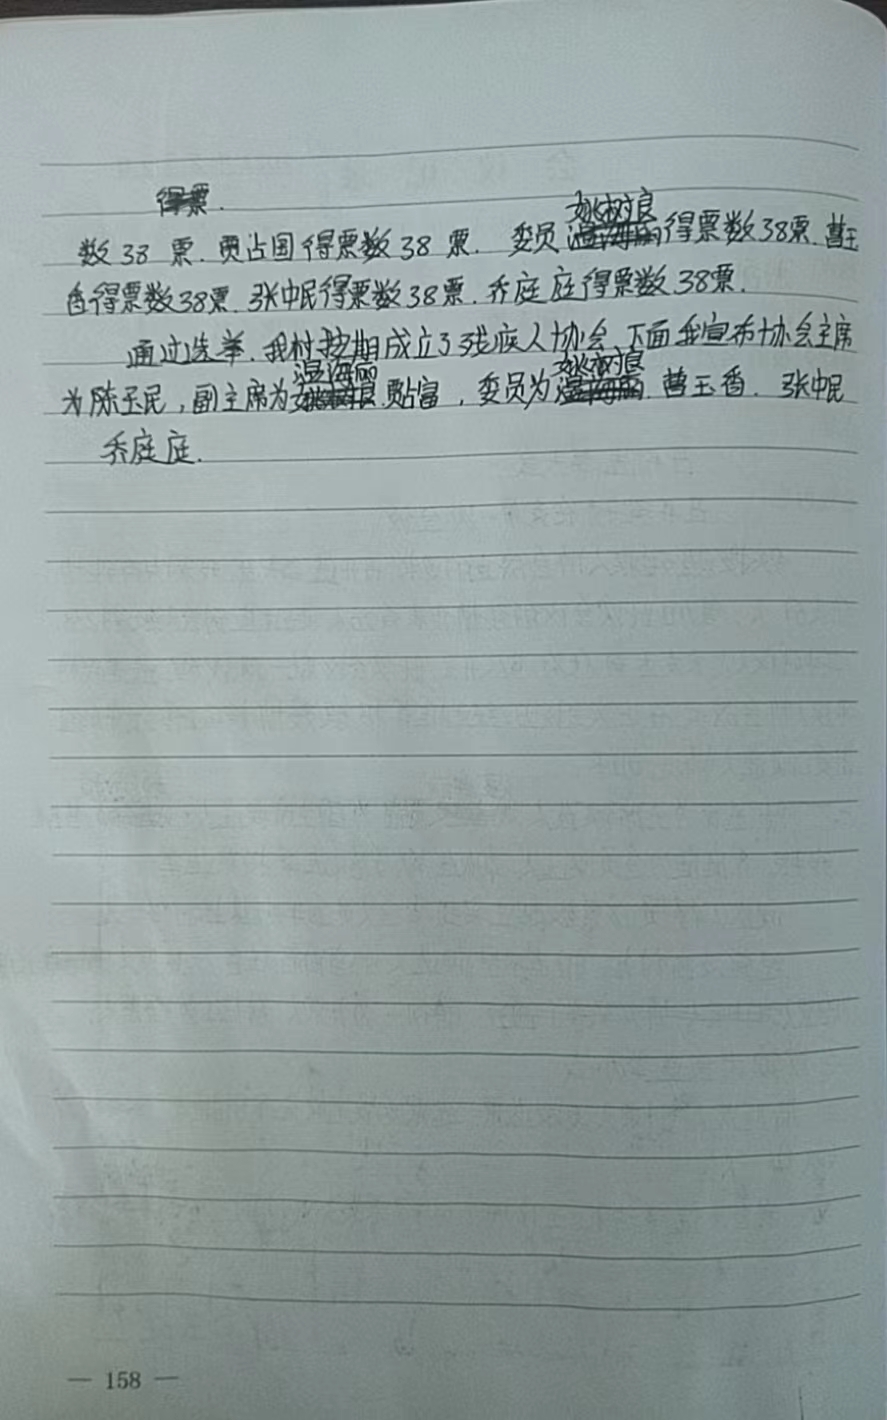 得票.
姚树良
数38票.贾占国得票数38票. 委员得票数38票.曹玉
香得票数38票.张中民得票数38票.乔庭庭得票数38票.
通过选举.我村按期成立了残疾人协会.下面我宣布协会主席
温海丽 姚树良
为陈玉民,副主席为 贾占富,委员为 曹玉香. 张中民
乔庭庭.
— 158 —